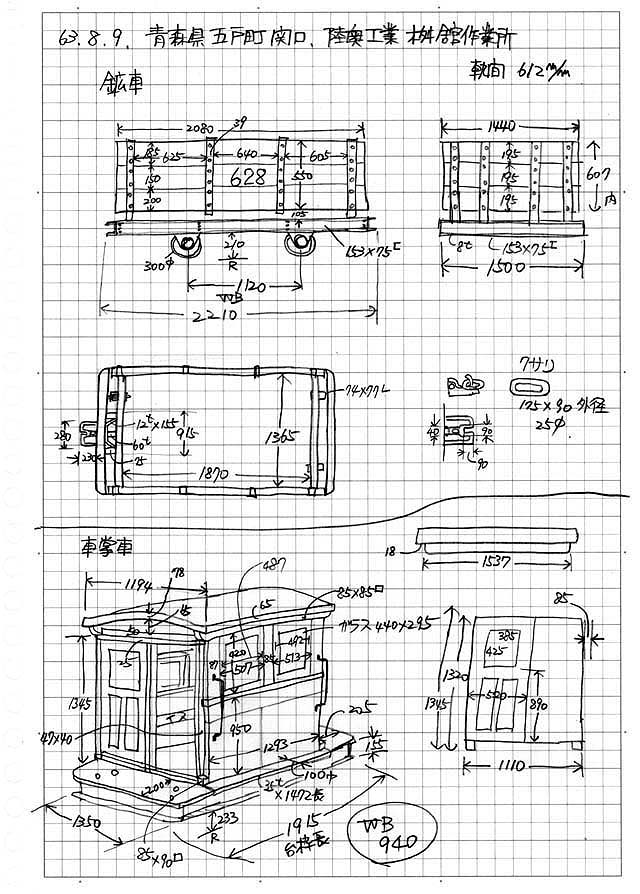 63.8.9. 青森県五戸町関口、陸奥工業桝舘作業所
軌間 612 m/m
鉱車
2080
39
625
640
605
195
150
200
628
550
105
210
R
300φ
153×75
1120
WB
2210
1440
195
195
195
607
内
8t
153×75
1500
74×77L
12t×155
60t
75
915
280
230
1870
1365
クサリ
125×90 外径
25φ
40
90
90
車掌車
18
1537
1194
78
487
85×85口
65
ガラス 440×295
50
25
420
507
492
85
513
1345
47×40
950
205
1293
155
100巾
35t×1472長
200
233
R
1350
85×90口
1915
台枠長
WB
940
85
385
425
1320
1345
500
890
1110